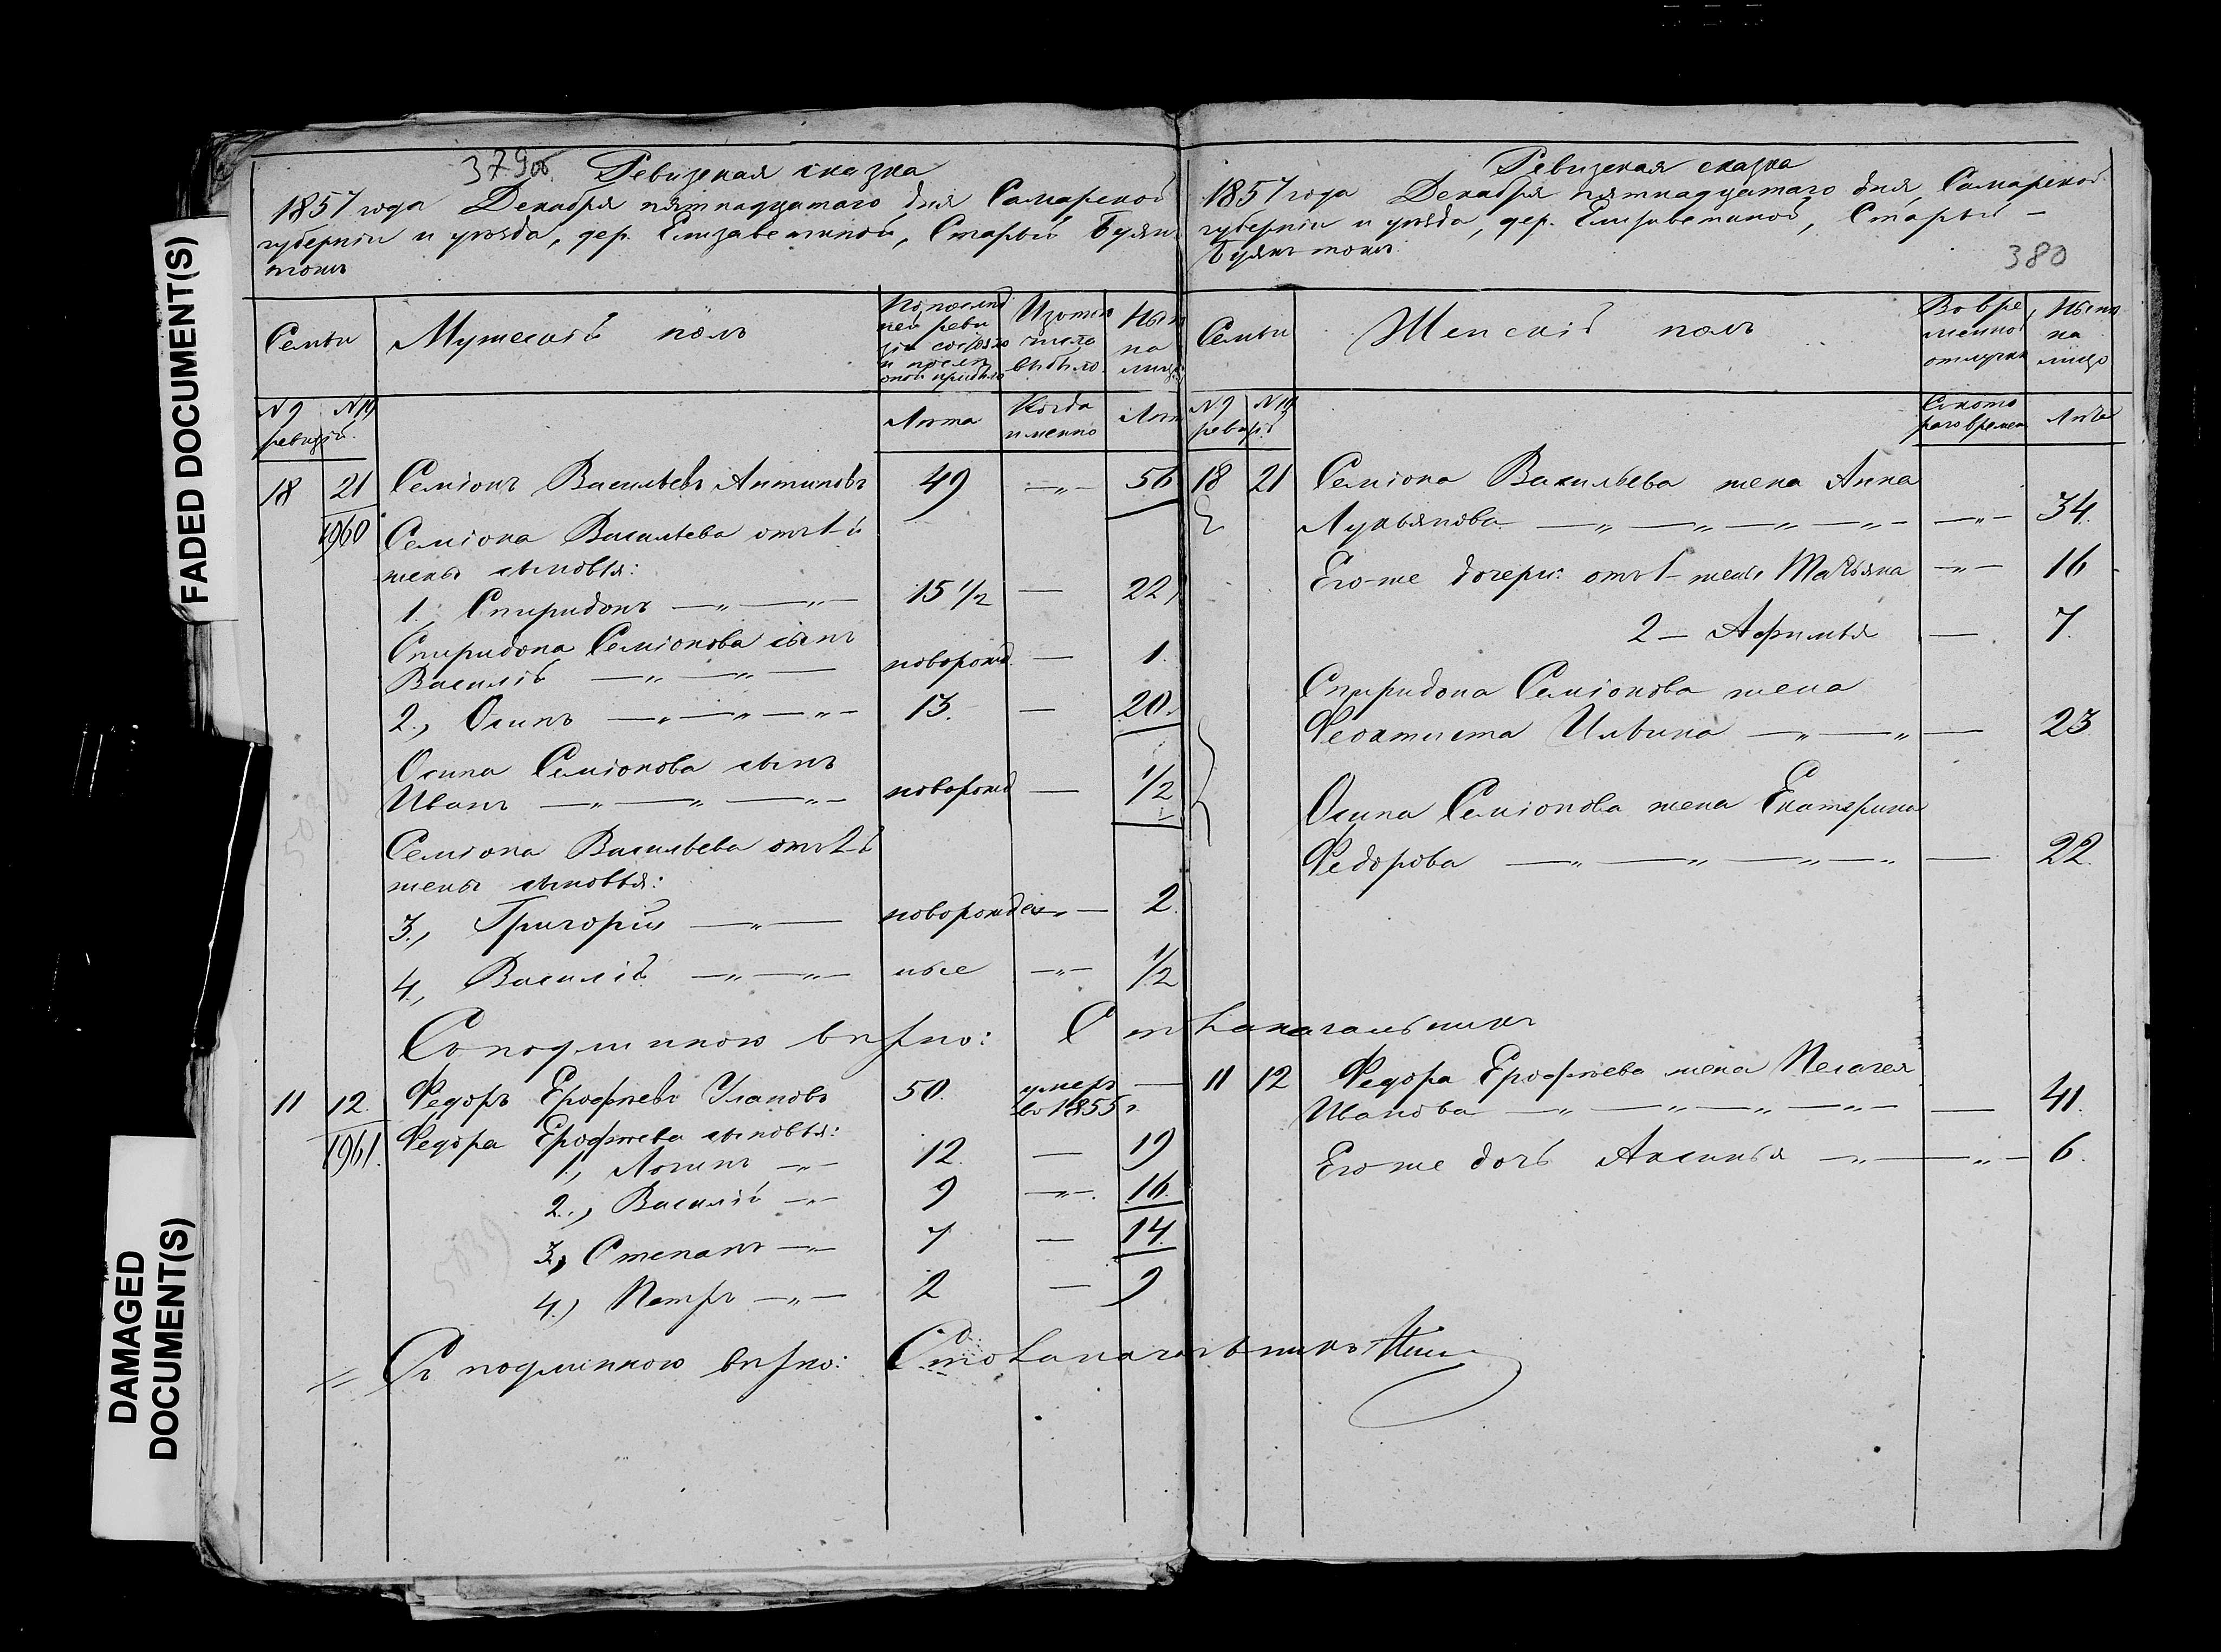 FADED DOCUMENT(S)
DAMAGED
DOCUMENT(S)
379об. Ревизская сказка
1857 года Декабря пятнадцатаго дня Самарской
губерніи и уѣзда, дер. Елизаветиной, Старый Буян
тожъ
Семьи
Мужескій полъ
По послѣд
ней реви
зіи состояло
и послѣ
оной прибыло
Изъ того
числа
выбыло
Нын
на
лицо
№ 9 № 10
ревизій.
Лѣта
Когда
именно
Лѣт
18 21 Семіонъ Васильевъ Антиповъ 49 —„— 56
1960 Семіона Васильева отъ 1-й
жены сыновья:
1. Спиридонъ —„— —„— 15 1/2 — 22
Спиридона Семіонова сынъ
Василій —„— —„— новорожд. — 1.
2., Осипъ —„—„—„— 13. — 20.
Осипа Семіонова сынъ
Иванъ —„— —„— —„— новорожд — 1/2
Семіона Васильева отъ 2-й
жены сыновья:
3., Григорій —„— новорожден — 2.
4., Василій —„— —„— ные —„— 1/2
Съ подлинною вѣрно: Станованачальникъ
11 12. Федоръ Ерофѣевъ Улановъ 50. умеръ —
въ 1855 г.
1961. Федора Ерофѣева сыновья:
1., Логинъ —„— 12. — 19
2., Василій —„— 9 —„—. 16.
3., Степанъ —„— 7 — 14.
4., Петръ —„— 2 — 9
Съ подлинною вѣрно:
Ревизская сказка
1857 года Декабря пятнадцатаго дня, Самарской
губерніи и уѣзда, дер. Елизаветиной, Старый —
Буянъ тожъ.
380
Семьи
Женскій полъ
Во вре
менной
отлучкѣ
Нынѣ
на
лицо
№ 9 № 10
ревизій
Съ кото
раго времен
Лѣта
18 21 Семіона Васильева жена Анна
Лукьянова —„— —„— —„— —„— 34.
Его-же дочери: отъ 1- жены Татьяна —„— 16
2 — Афимья — 7.
Спиридона Семіонова жена
Феоктиста Ильина —„— —„— 23
Осипа Семіонова жена Екатерина
Федорова —„— —„— —„— —„— 22.
11 12 Федора Ерофѣева жена Пелагея
Иванова —„— —„— —„— — 41.
Его-же дочь Аксинья —„— —„— 6.